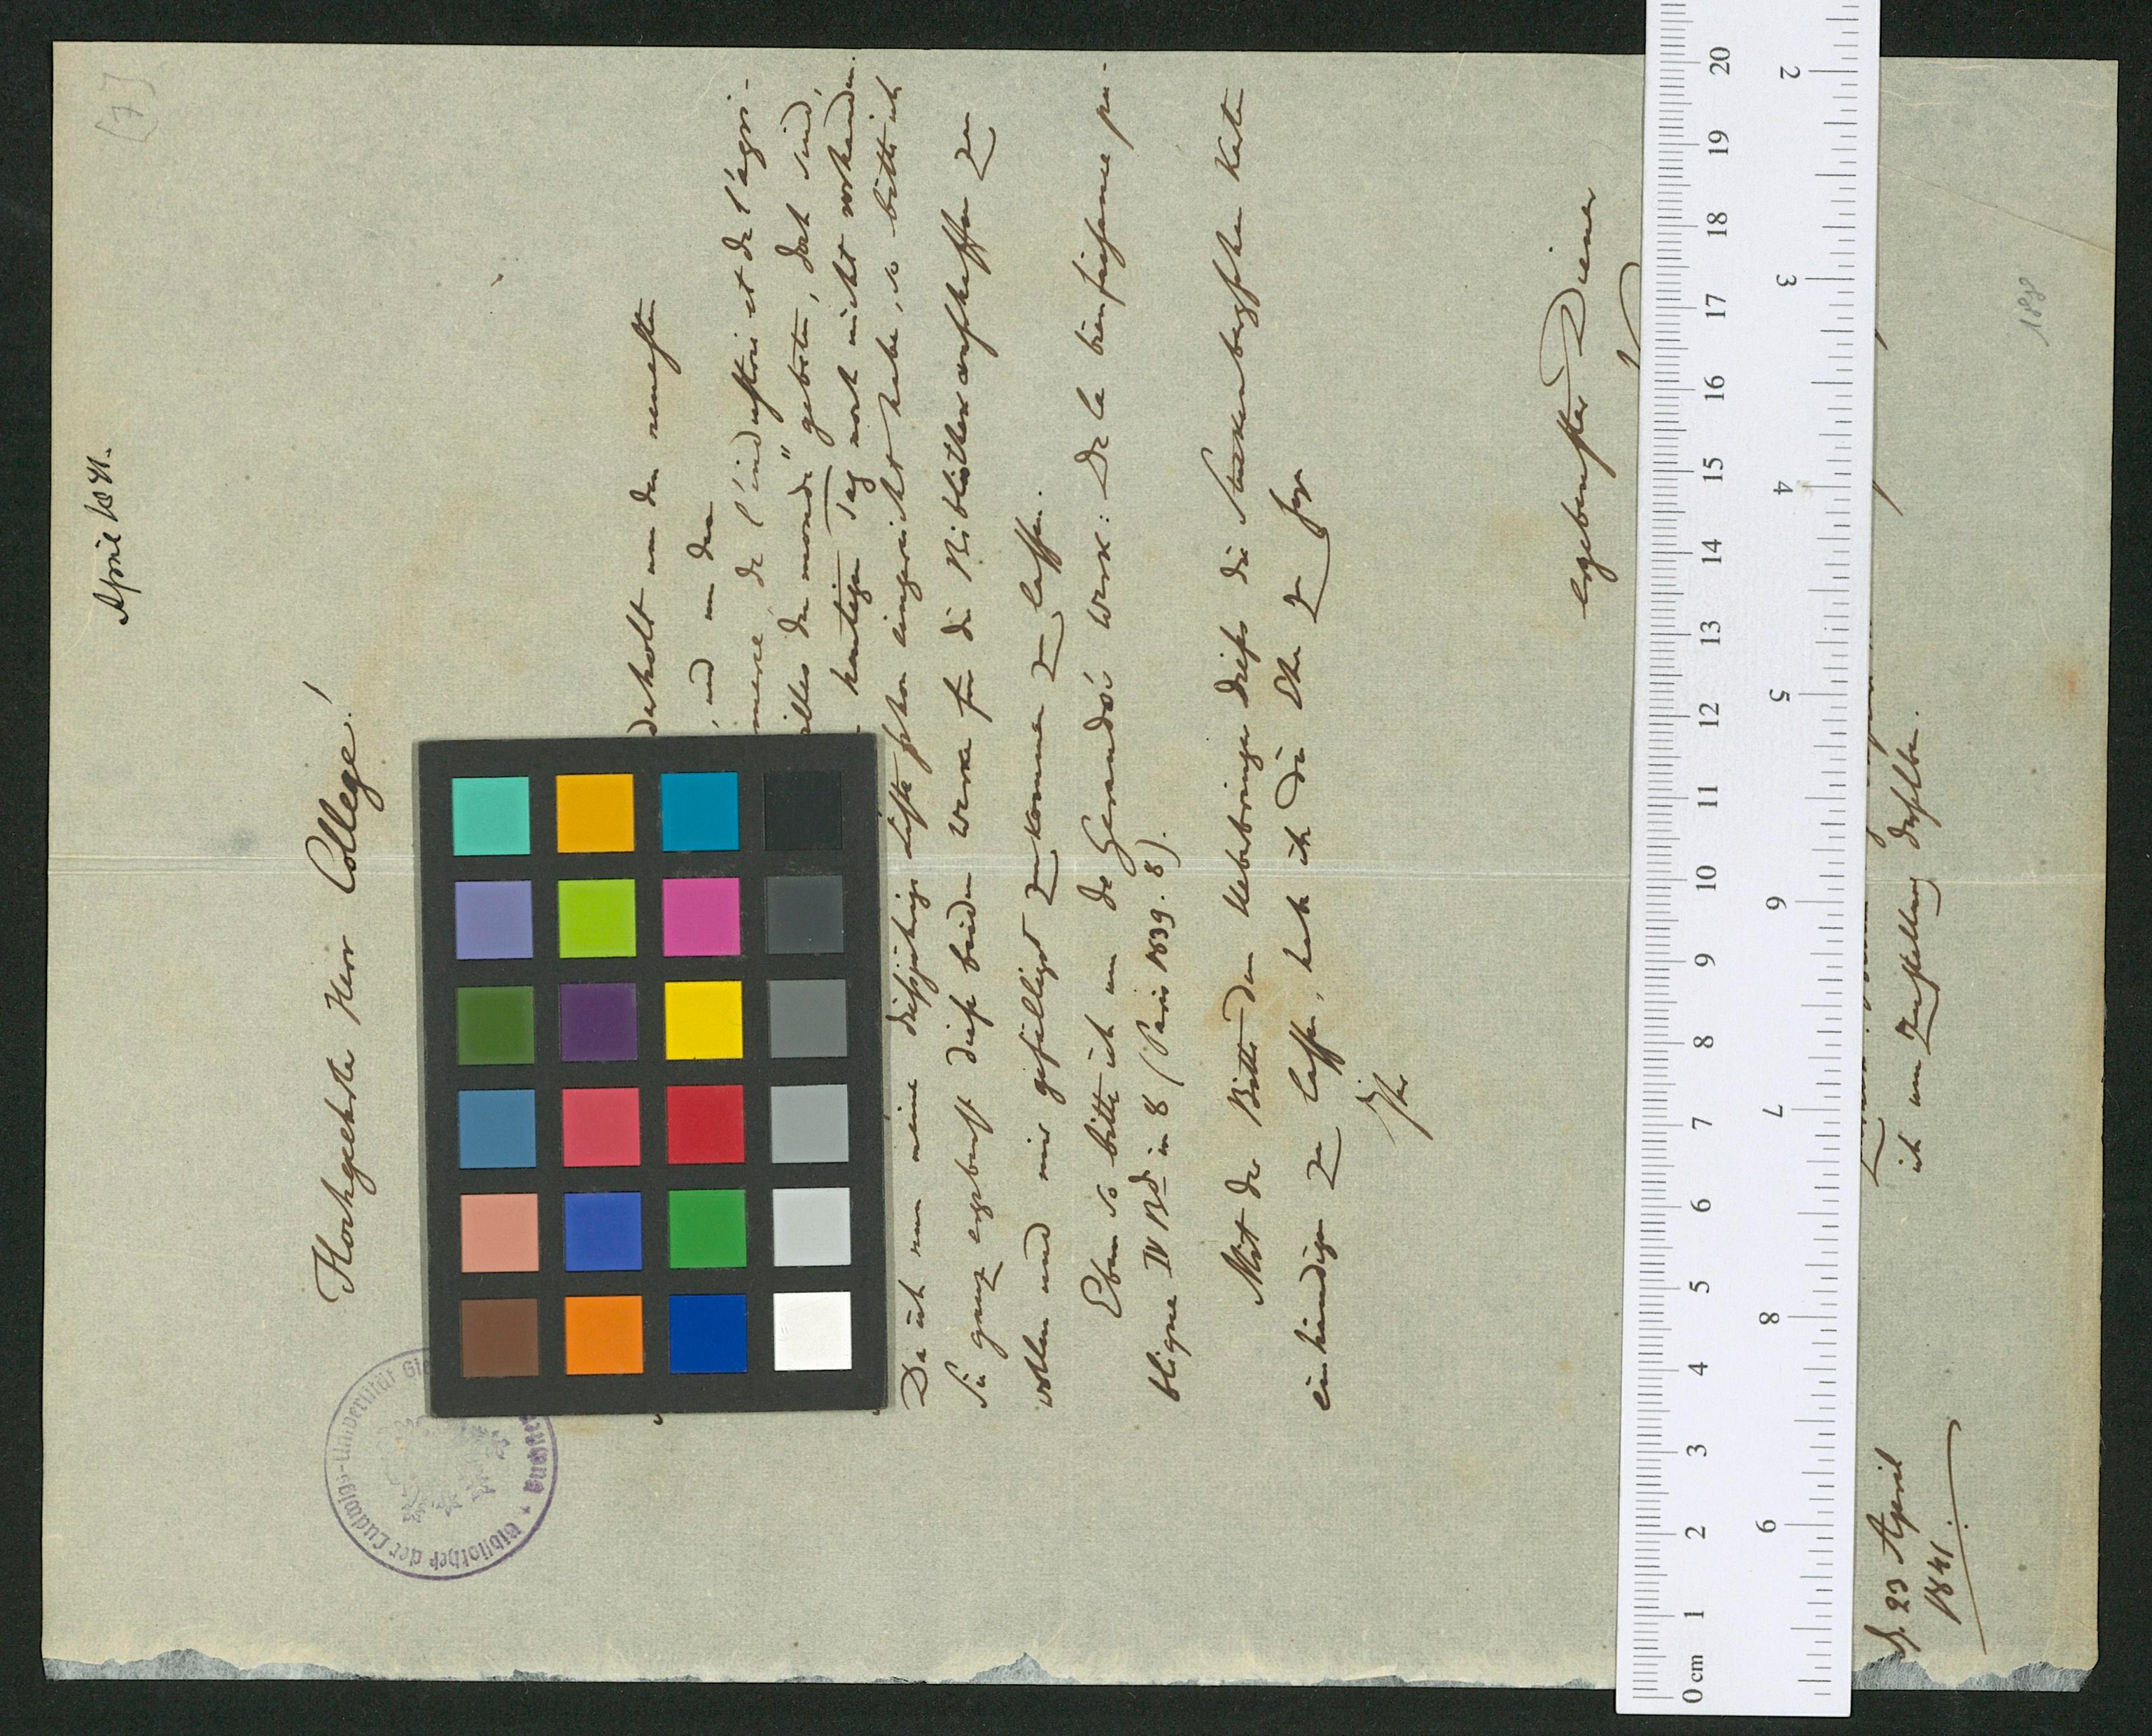 [7]
April 1841.
Hochgeehrter Herr College!
derholt um den neuesten
, und um den
merce, de l'industrie et de l'agri-
villes du monde" gebeten, doch sind,
heutigen Tag noch nicht vorhanden.
Da ich nun meine dießjährige Liste schon eingereicht habe, so bitte ich
Sie ganz ergebenst diese beiden Werke für die Bibliothek anschaffen zu
wollen und mir gefälligst zukommen zu lassen.
Eben so bitte ich um de Gerando's Werk: De la bienfaisance pu-
blique IV Bd in 8 (Paris 1839. 8).
Mit der Bitte dem Ueberbringer dieses die Karte
einhändigen zu lassen, habe ich die Ehre zu seyn
Ihr
ergebenster Diener
ich um Zustellung desselben.
d. 23 April
1841.
1898
Bibliothek der Ludwigs-Universität Gie
0 cm 1 2 3 4 5 6 7 8 9 10 11 12 13 14 15 16 17 18 19 20
2 3 4 5 6 7 8 9